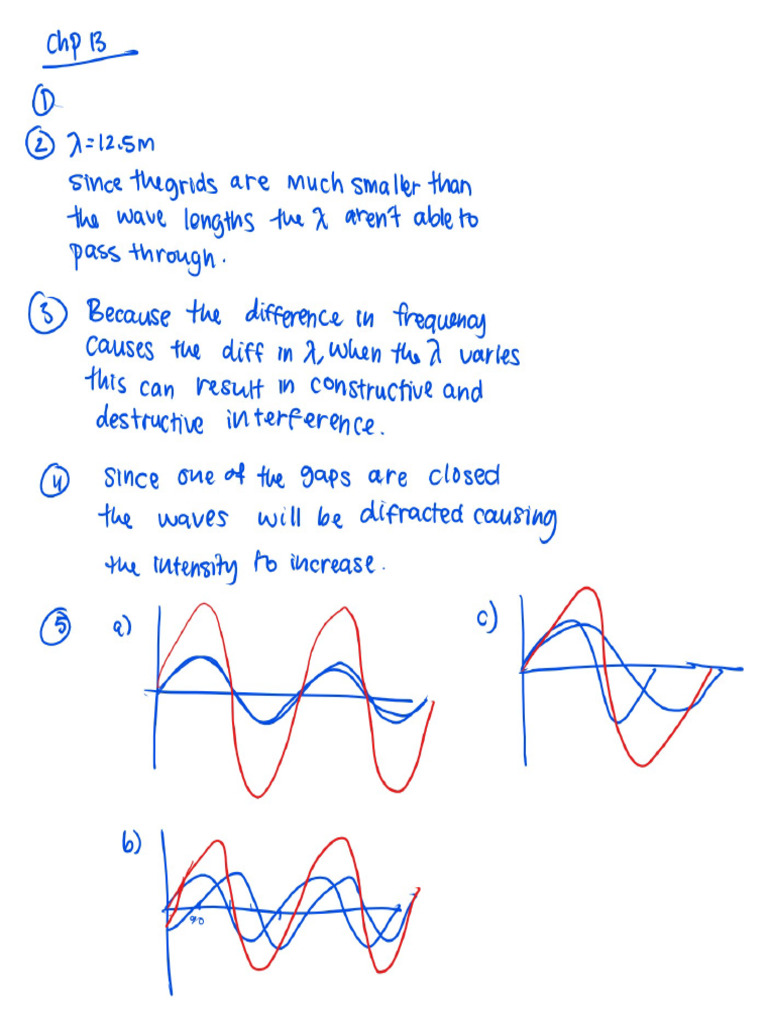 Chp 13
①
② λ=12.5m
Since the grids are much smaller than
the wave lengths the λ aren't able to
pass through.
③ Because the difference in frequency
causes the diff in λ, when the λ varies
this can result in constructive and
destructive interference.
④ Since one of the gaps are closed
the waves will be difracted causing
the intensity to increase.
⑤ a)
c)
b)
90